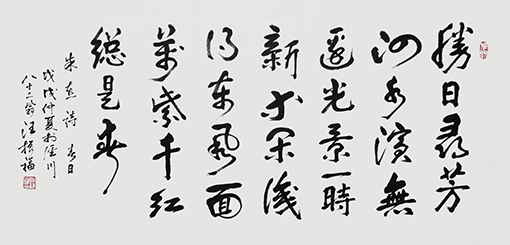 勝日尋芳
泗水濱無
邊光景一時
新等閒識
得東風面
萬紫千紅
總是春
朱熹詩 春日
戊戌仲夏於涇川
八十二翁汪振福